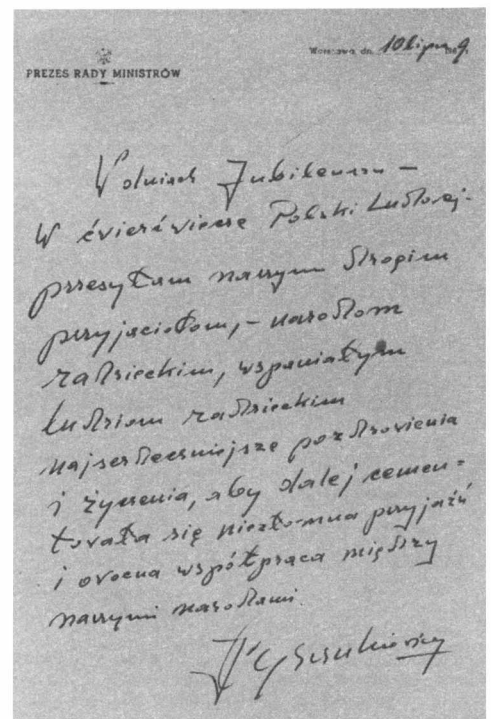 Warszawa, dn. 10 lipca 9.
PREZES RADY MINISTRÓW
W dniach Jubileuszu –
W ćwierćwiecze Polski Ludowej –
przesyłam naszym drogim
przyjaciołom, – narodom
radzieckim, wspaniałym
ludziom radzieckim
najserdeczniejsze pozdrowienia
i życzenia, aby dalej cemen-
towała się niezłomna przyjaźń
i owocna współpraca między
naszymi narodami.
J. Cyrankiewicz